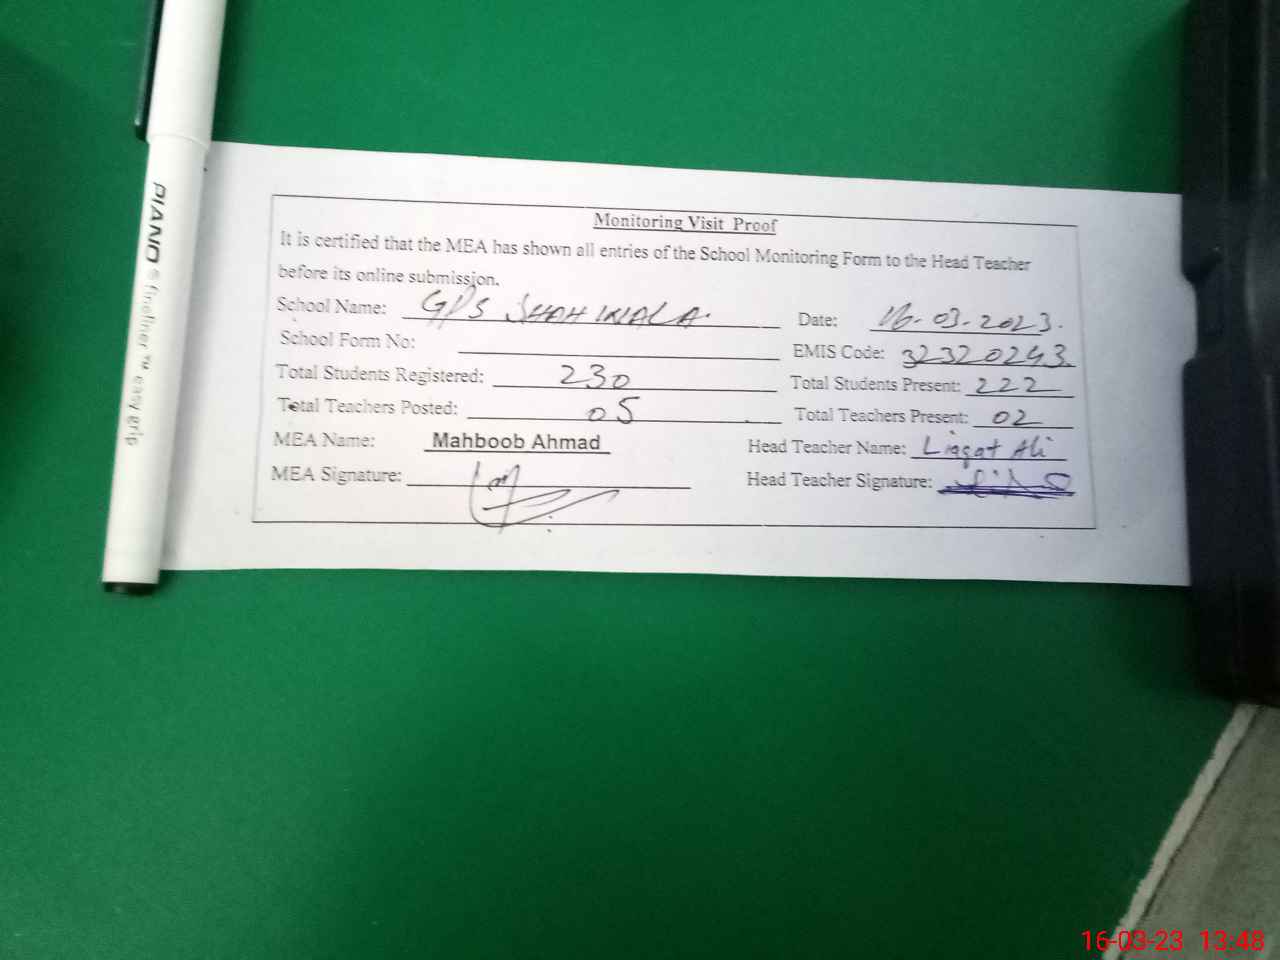 PIANO fineliner ™ easy grip
Monitoring Visit Proof
It is certified that the MEA has shown all entries of the School Monitoring Form to the Head Teacher
before its online submission.
School Name: GPS SHAH WALA. Date: 16-03-2023.
School Form No: EMIS Code: 32320243
Total Students Registered: 230 Total Students Present: 222
Total Teachers Posted: 05 Total Teachers Present: 02
MEA Name: Mahboob Ahmad Head Teacher Name: Liaqat Ali
MEA Signature: Head Teacher Signature:
16-03-23 13:48